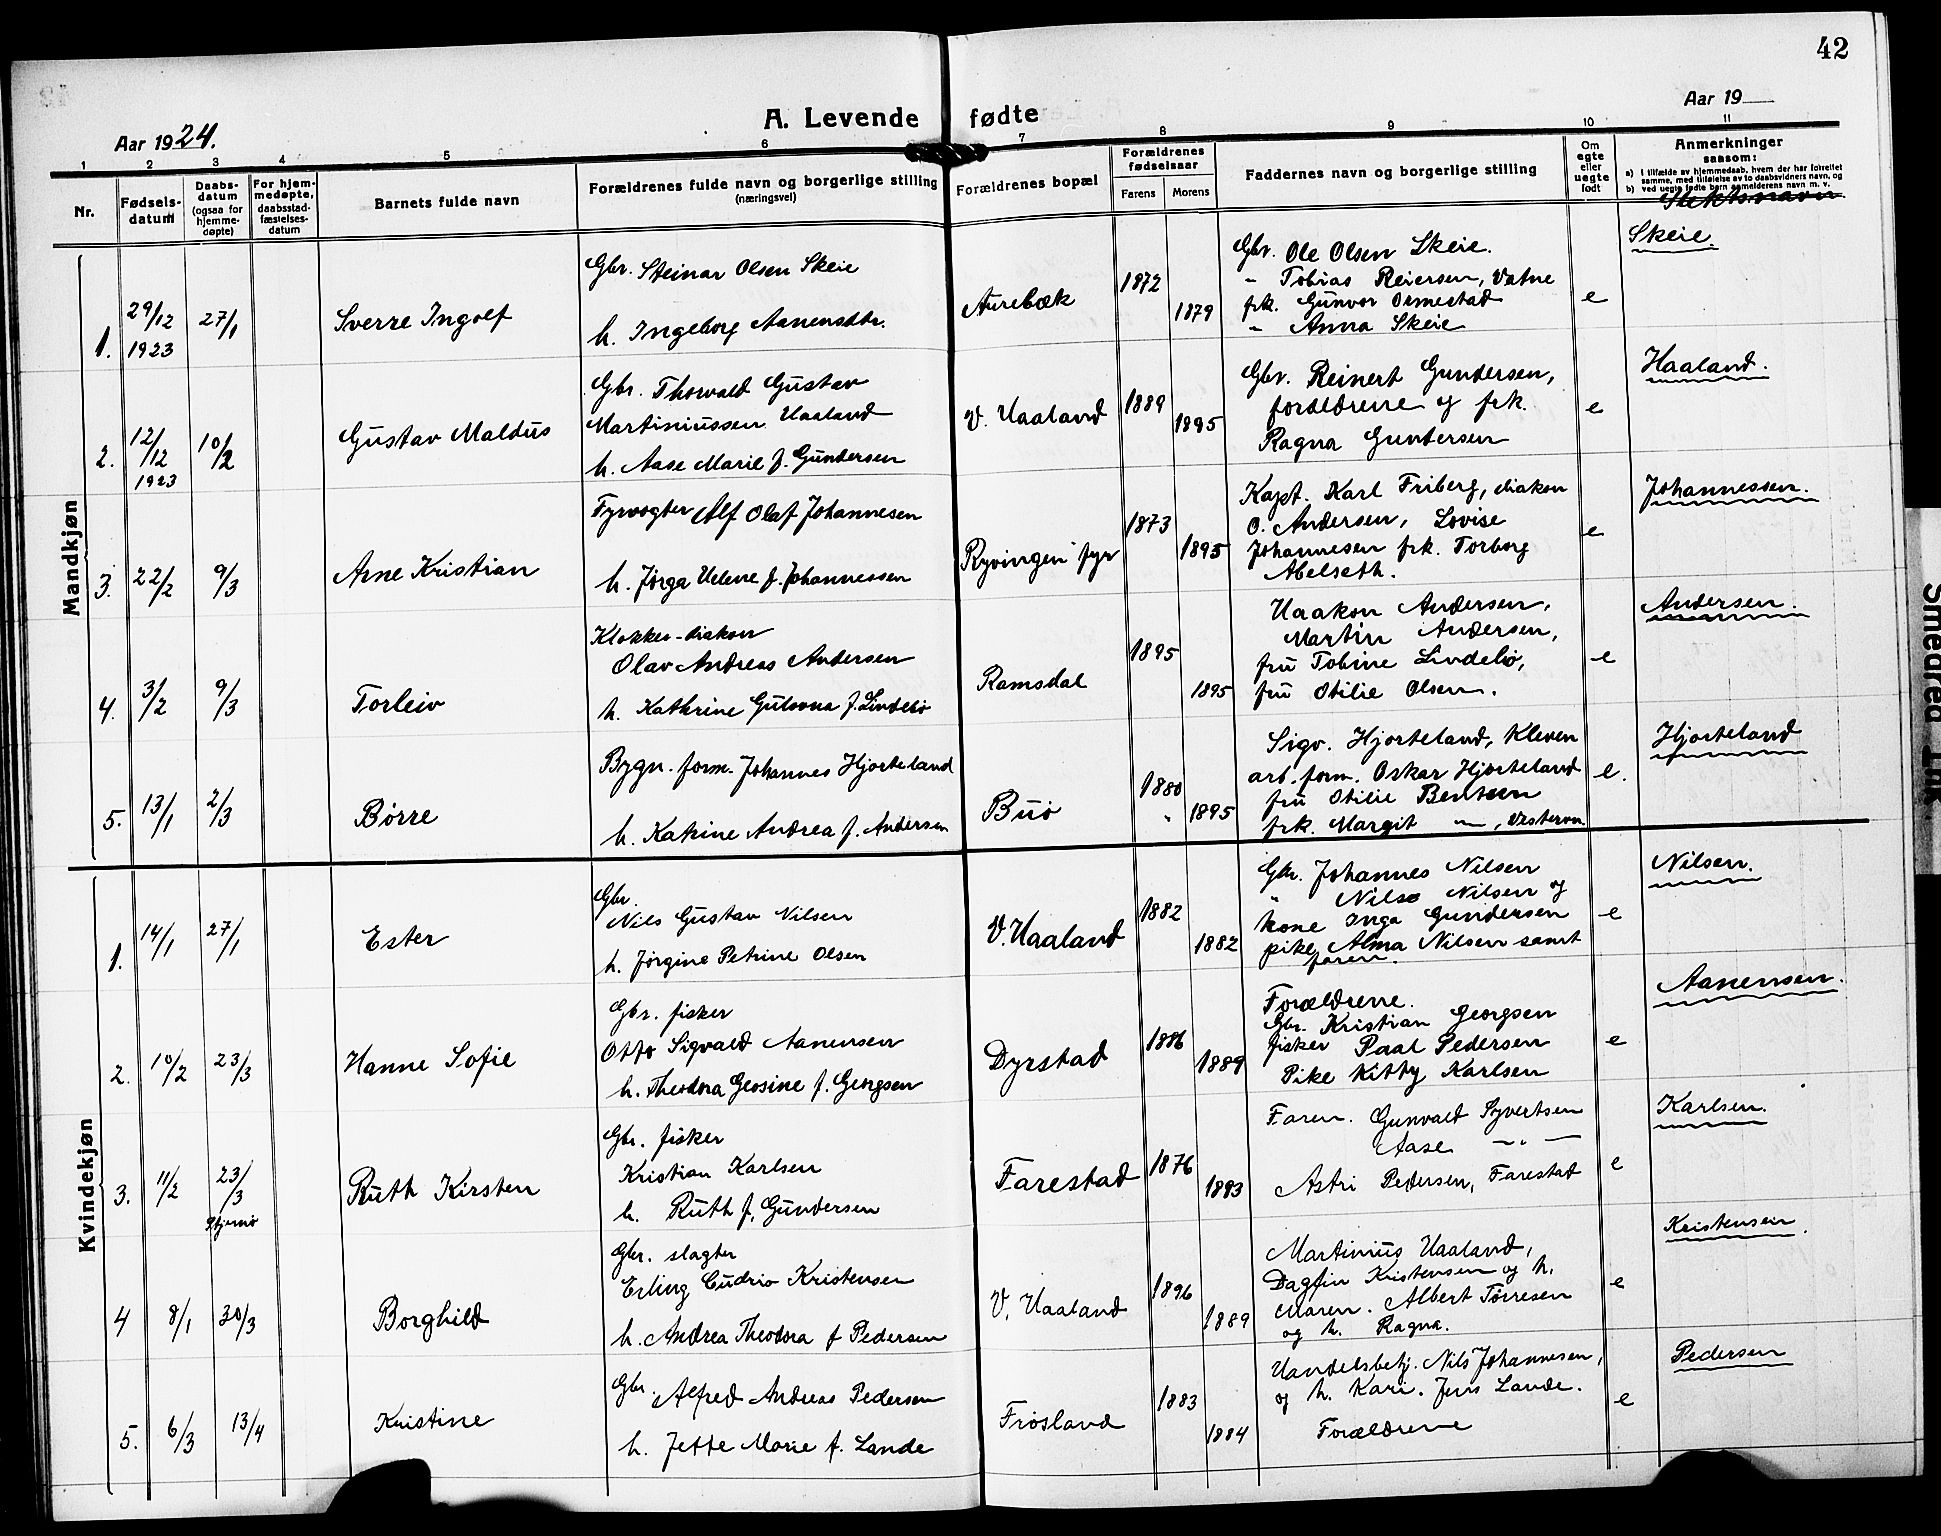 42
A. Levende fødte
Aar 1924.
Aar 19
1 2 3 4 5 6 7 8 9 10 11
Nr.
Fødsels-
datum
Daabs-
datum
(ogsaa for
hjemme-
døpte)
For hjem-
medøpte,
daabsstad-
fæstelses-
datum
Barnets fulde navn
Forældrenes fulde navn og borgerlige stilling
(næringsvei)
Forældrenes bopæl
Forældrenes
fødselsaar
Farens Morens
Faddernes navn og borgerlige stilling
Om
egte
eller
uegte
født
Anmerkninger
saasom:
a) I tilfælde av hjemmedaab, hvem der har forrettet
samme, med tilføielse av to daabsvidners navn, og
b) ved uegte fødte barn anmelderens navn m. v.
Slektsnavn
Mandkjøn
1. 29/12 1923 27/1 Sverre Ingolf
Gbr. Steinar Olsen Skeie
h. Ingeborg Aanensdtr.
Aurebæk 1872 1879
Gbr. Ole Olsen Skeie.
" Tobias Reiersen, Vatne
frk. Gunvor Ormestad
" Anna Skeie
e
Skeie.
2. 12/12 1923 10/2 Gustav Maldus
Gbr. Thorvald Gustav
Martiniussen Haaland
h. Aase Marie f. Gundersen
V. Haaland 1889 1895
Gbr. Reinert Gundersen,
forældrene og frk.
Ragna Gundersen
e
Haaland.
3. 22/2 9/3 Arne Kristian
Fyrvogter Alf Olaf Johannesen
h. Jørga Helene f. Johannessen
Ryvingen fyr 1873 1895
Kapt. Karl Friberg, diakon
O. Andersen, Lovise
Johannesen frk. Torborg
Abelseth.
e
Johannessen.
4. 3/2 9/3 Torleiv
Klokker-diakon
Olav Andreas Andersen
h. Kathrine Gulovna f. Lindebø
Ramsdal 1895 1895
Haakon Andersen,
Martin Andersen,
fru Tobine Lindebø,
fru Otilie Olsen.
e
Andersen.
5. 13/1 2/3 Børre
Bygn. form. Johannes Hjorteland
h. Katrine Andrea f. Andersen
Buø 1880 " 1895
Sigv. Hjorteland, Kleven
arb. form. Oskar Hjorteland
fru Otilie Bentsen
frk. Margit —"—,
e.
Hjorteland
Kvindekjøn
1. 14/1 27/1 Ester
Gbr.
Nils Gustav Nilsen
h. Jørgine Petrine Olsen
V. Haaland 1882 1882
Gbr. Johannes Nilsen
" Nils Nilsen og
kone Inga Gundersen
pike Alma Nilsen samt
faren.
e
Nilsen.
2. 10/2 23/3 Hanne Sofie
Gbr. fisker
Otto Sigvald Aanensen
h. Theodora Geosine f. Georgsen
Dyrstad 1886 1889
Forældrene.
Gbr. Kristian Georgsen
fisker Paal Pedersen
Pike Kitty Karlsen
e
Aanensen.
3. 11/2 23/3 Ruth Kirsten
Gbr. fisker
Kristian Karlsen
h. Ruth f. Gundersen
Farestad 1876 1893
Faren. Gunvald Syvertsen
Aase —"—
Astri Pedersen, Farestad
e
Karlsen.
4 8/1 30/3 Borghild
Gbr. slagter
Erling Kristensen
h. Andrea Theodora f Pedersen
V. Haaland 1896 1889
Martinius Haaland,
Dagfin Kristensen og h.
Maren. Albert Tørresen
og h. Ragna.
e
Kristensen.
5. 6/3 13/4 Kristine
Gbr. Alfred Andreas Pedersen
h. Jette Marie f. Lande
Frøsland 1883 1884
Handelsbetj. Nils Johannesen,
og h. Kari. Jens Lande.
Forældrene
e
Pedersen